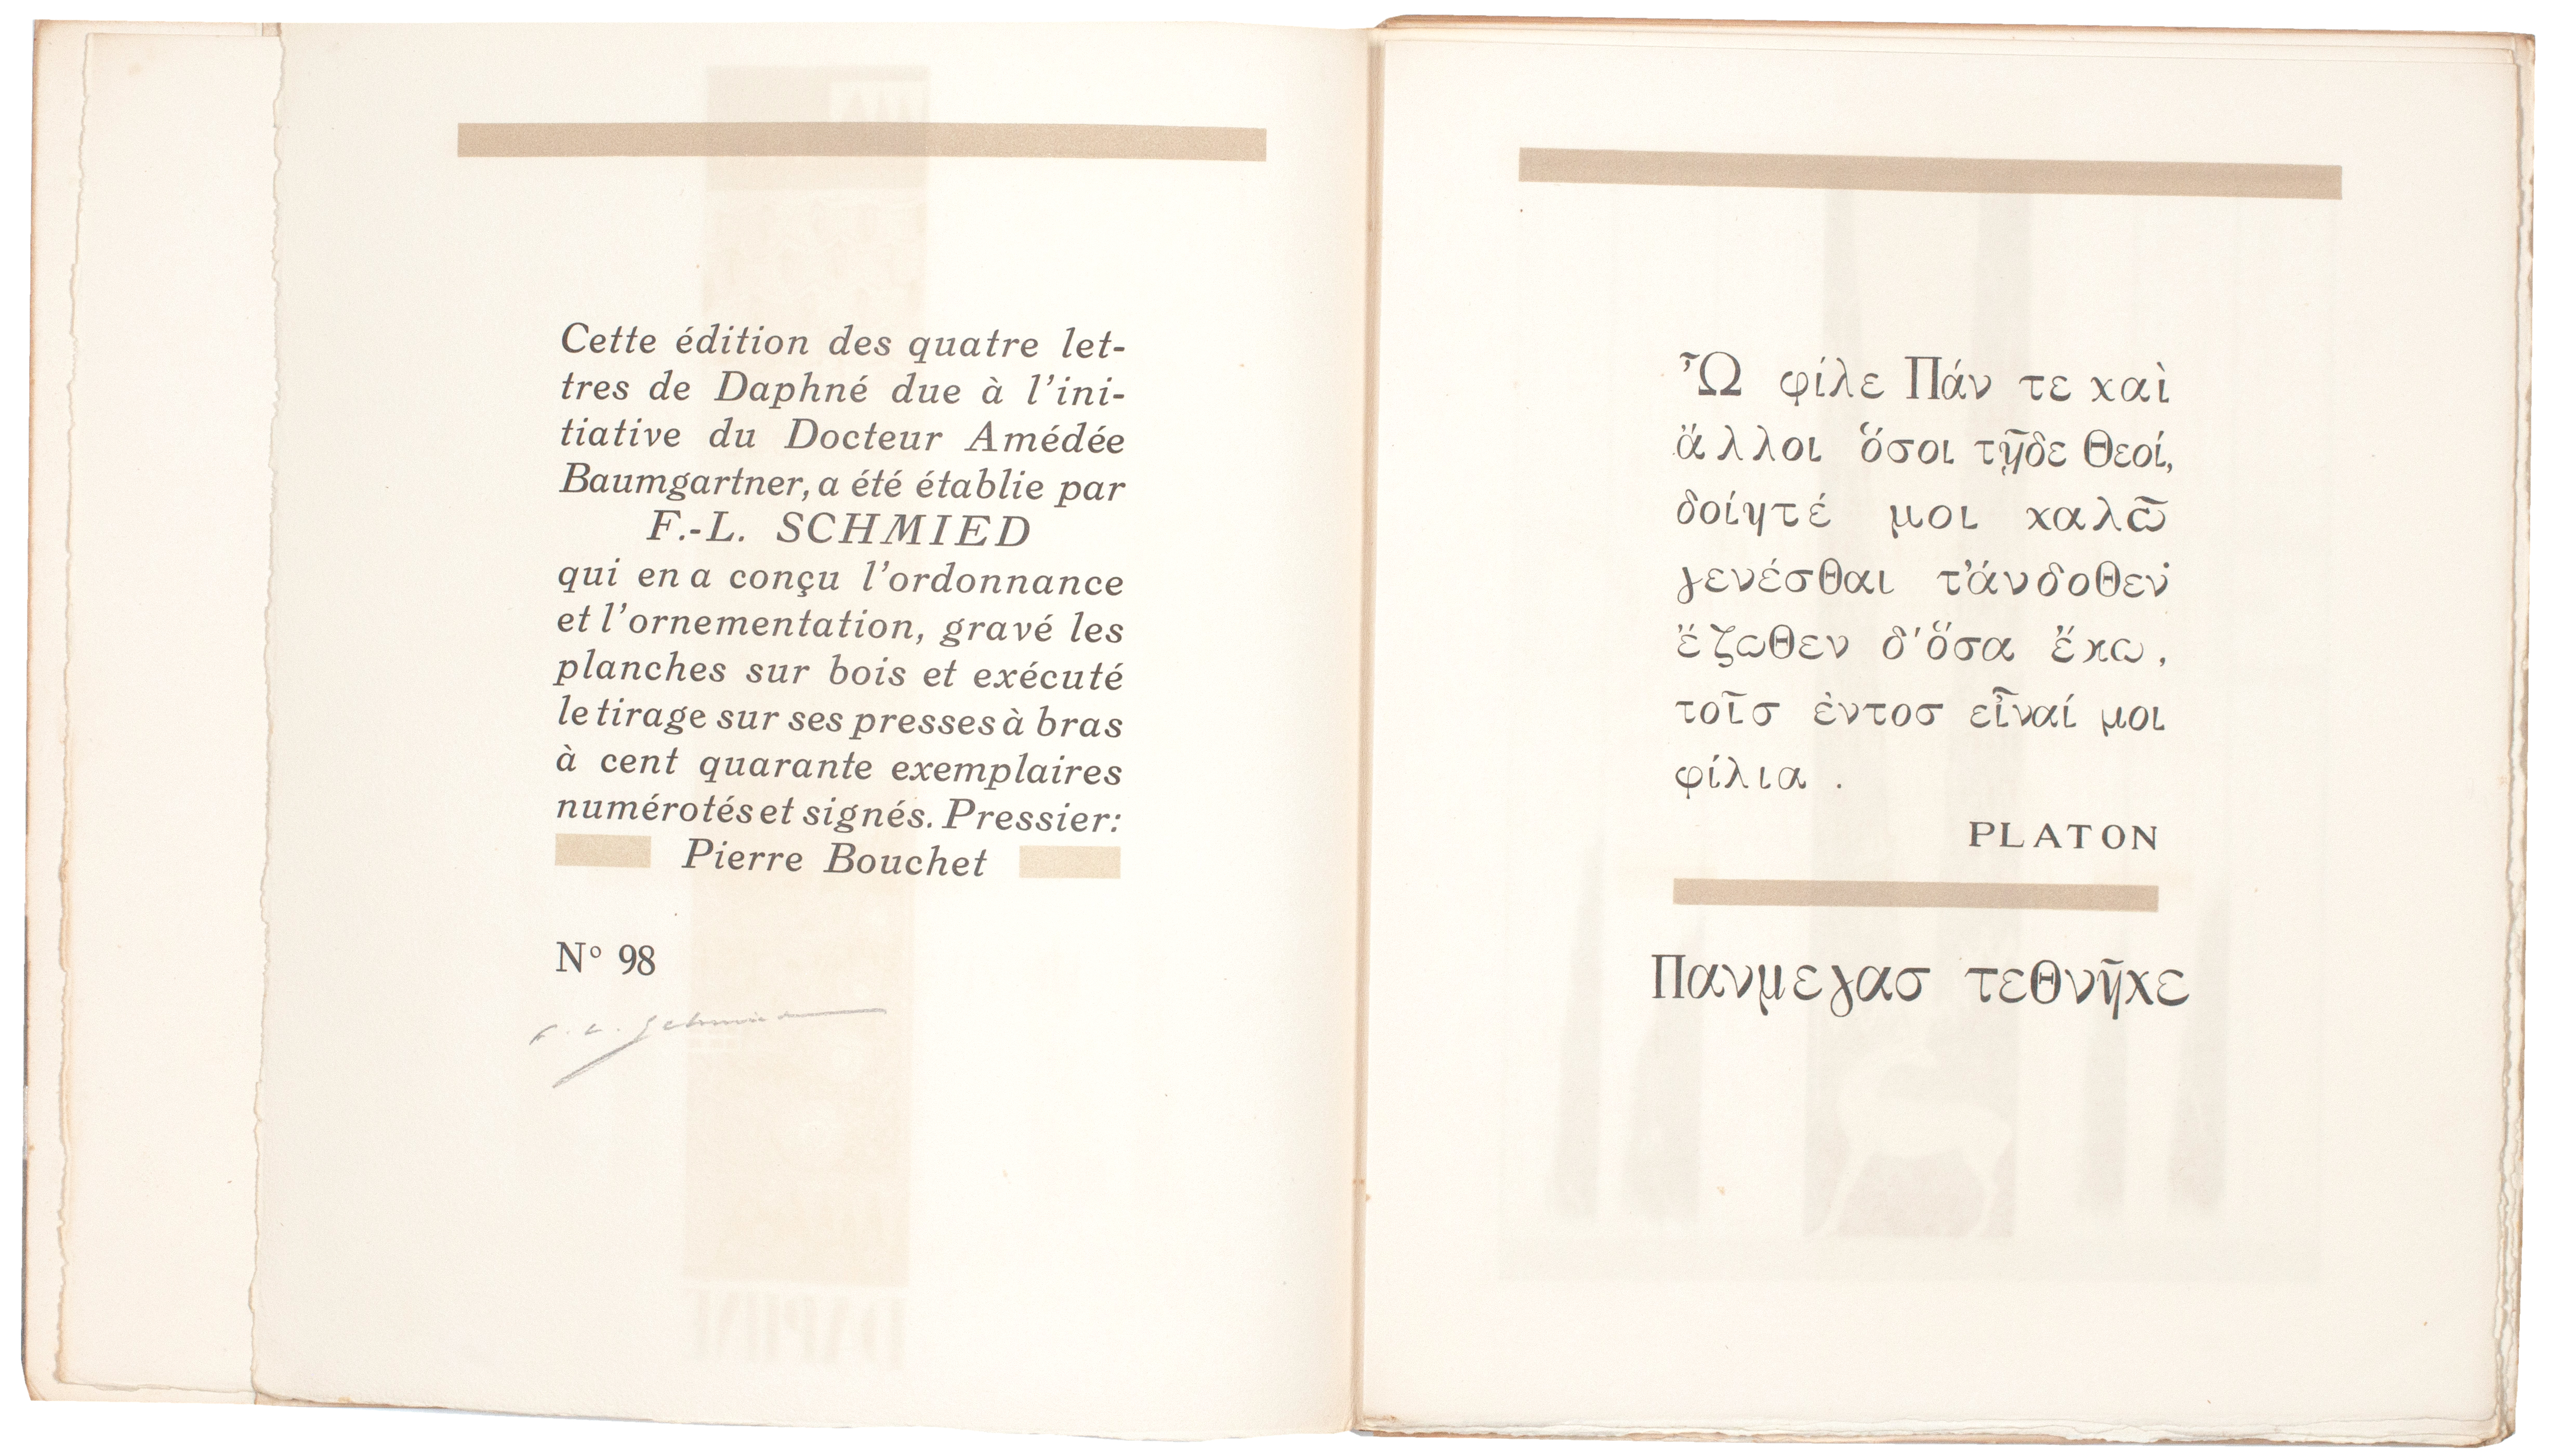 Cette édition des quatre let-
tres de Daphné due à l'ini-
tiative du Docteur Amédée
Baumgartner, a été établie par
F.-L. SCHMIED
qui en a conçu l'ordonnance
et l'ornementation, gravé les
planches sur bois et exécuté
le tirage sur ses presses à bras
à cent quarante exemplaires
numérotés et signés. Pressier:
Pierre Bouchet
Nº 98
F. L. Schmied
Ὦ φίλε Πάν τε χαὶ
ἄλλοι ὅσοι τῇδε Θεοί,
δοίητέ μοι χαλῶ
γενέσθαι τ'άνδοθεν·
ἔζωθεν δ'ὅσα ἔχω,
τοῖσ ἐντοσ εἶναί μοι
φίλια .
PLATON
Πανμεγασ τεθνῆχε